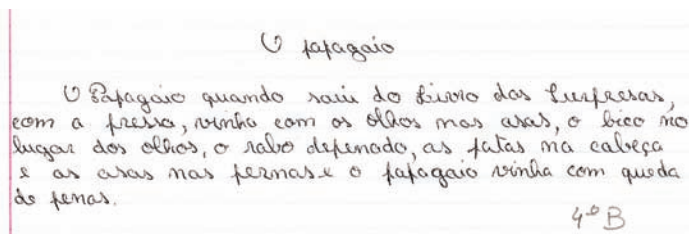 O papagaio
O Papagaio quando saiu do Livro das Surpresas,
com a pressa, vinha com os olhos nas asas, o bico no
lugar dos olhos, o rabo depenado, as patas na cabeça
e as asas nas pernas e o papagaio vinha com queda
de penas.
4º B